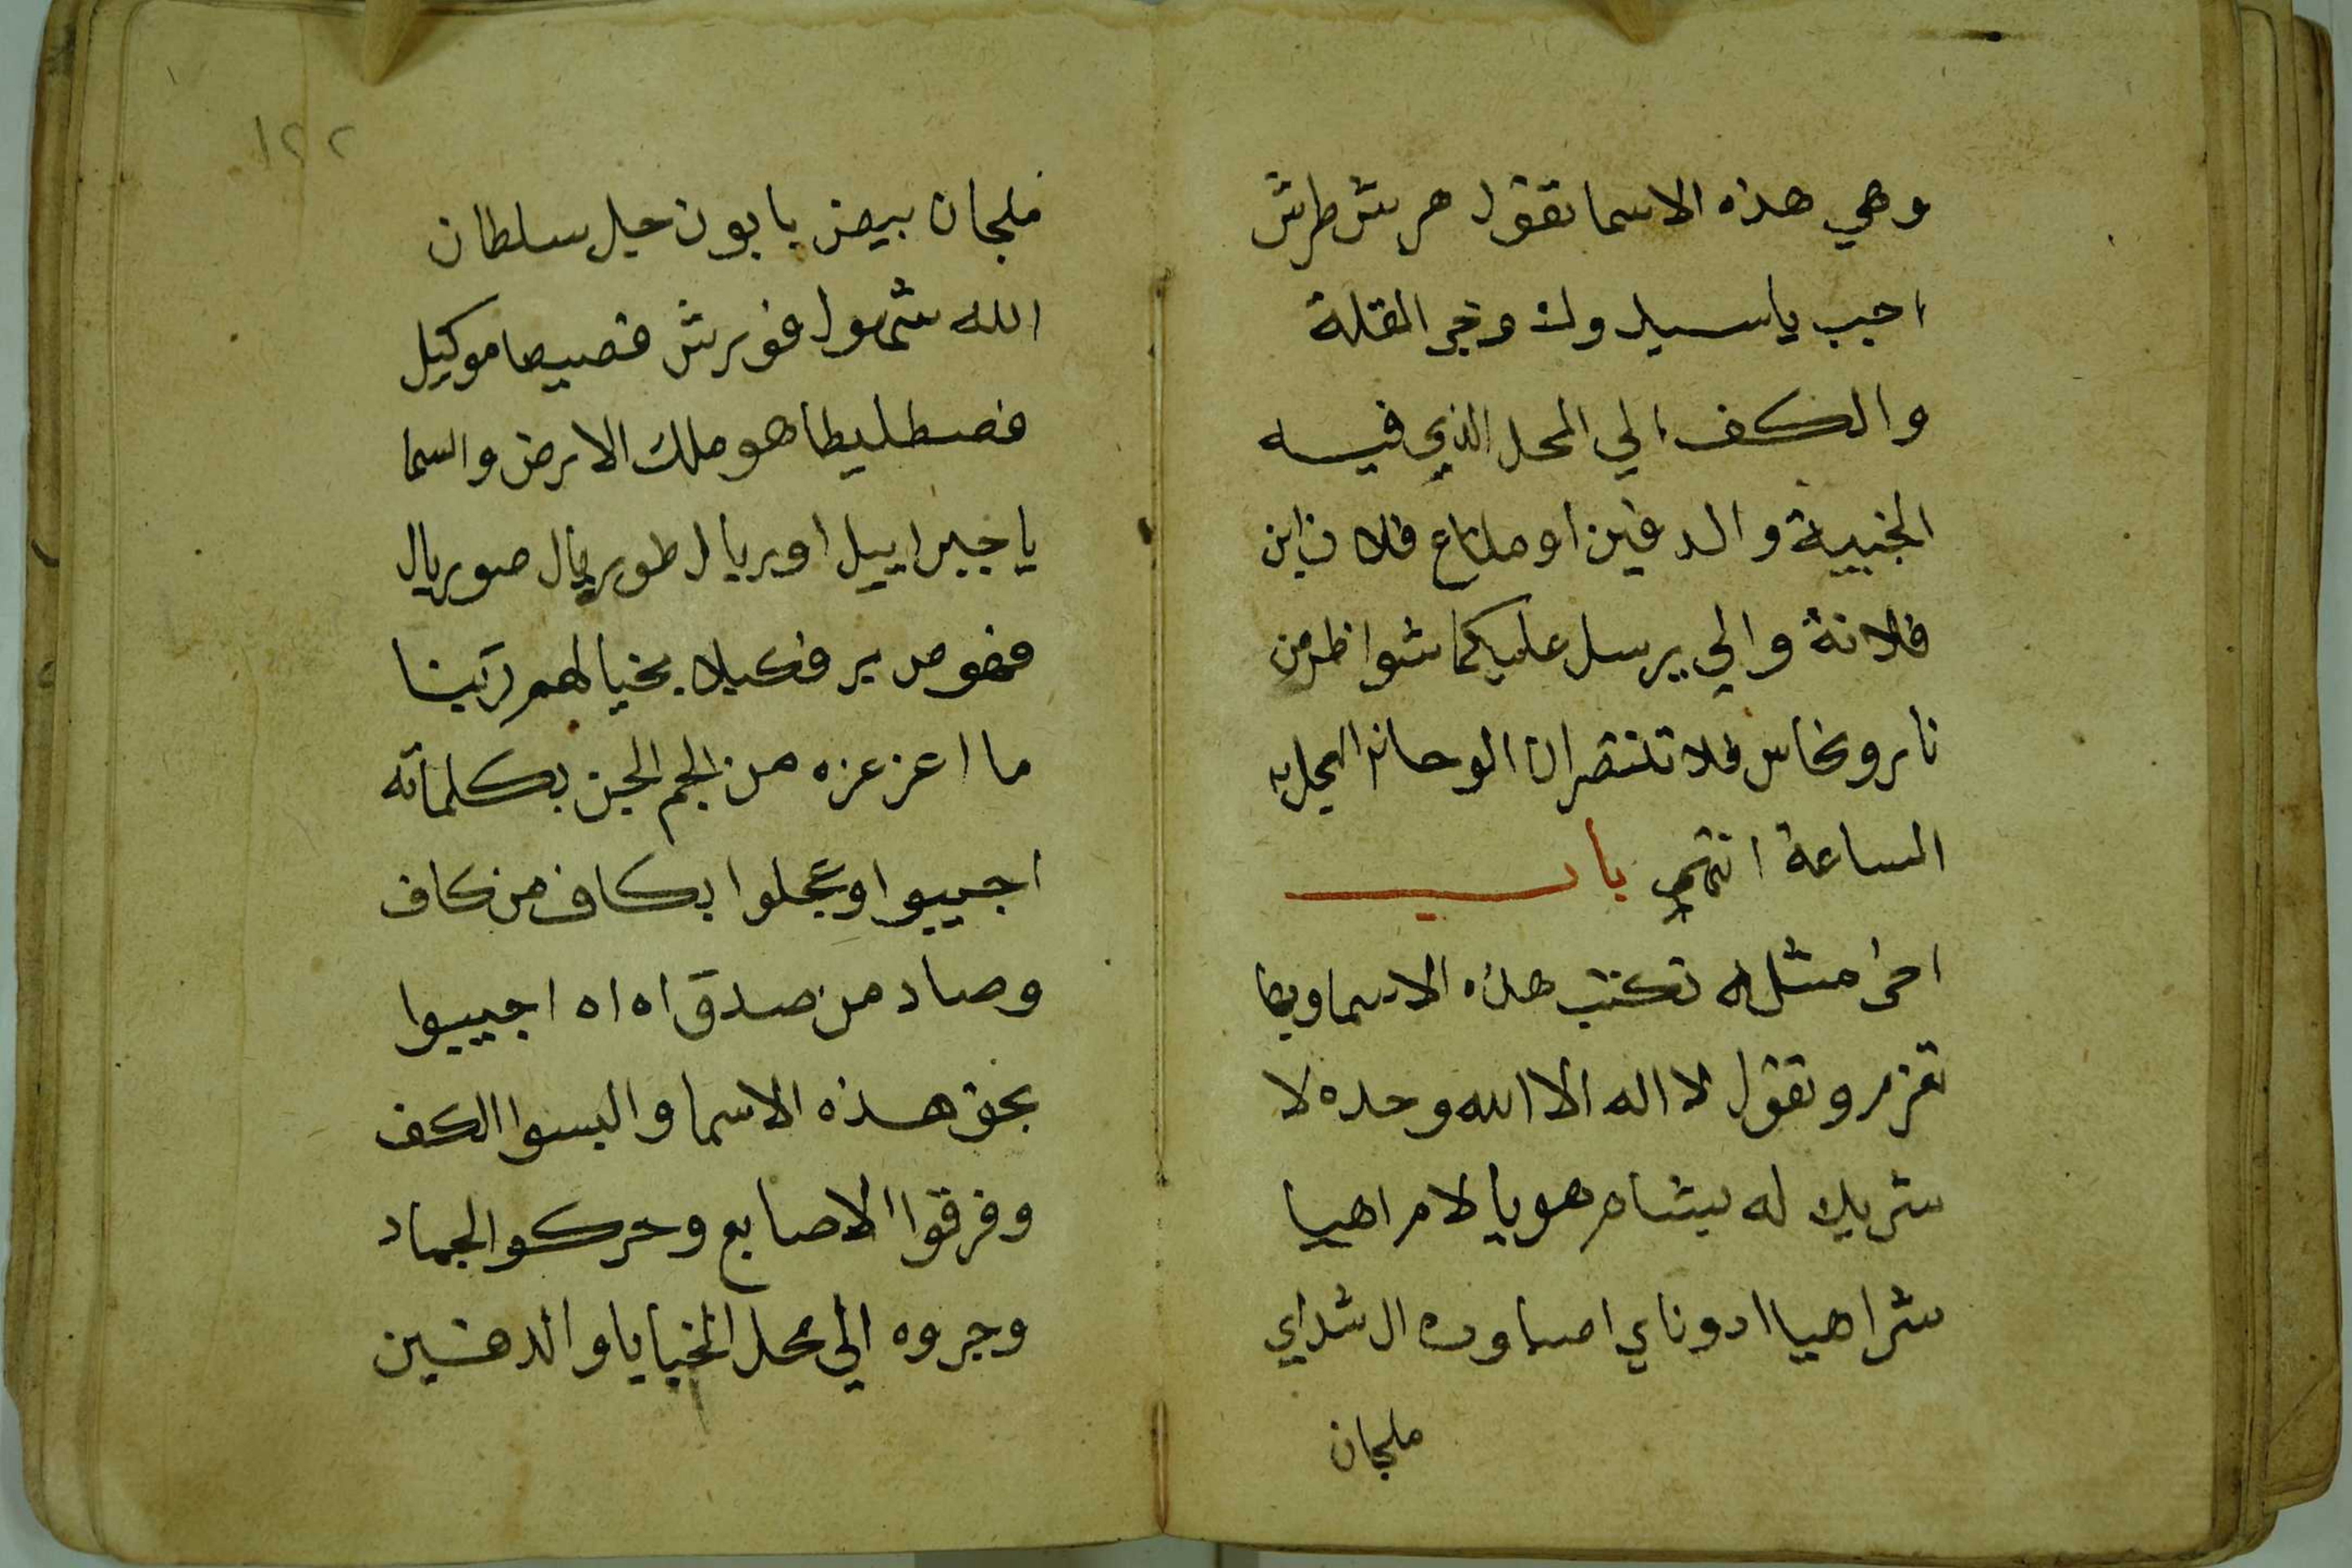 وهي هذه الاسما تقول هرش طرش
اجب يا سيد وك وخر المقلة
والكف الي المحل الذي فيه
الخبيية والدفين او متاع فلان ابن
فلانة والي يرسل عليكما شواظ من
نار ونحاس فلا تنتصران الوحا العجل
الساعة انتهي باب
اخر مثله تكتب هذه الاسما وبها
تعزم وتقول لا اله الا الله وحده لا
شريك له بشاه هو يا لام اهيا
شراهيا ادوناي اصباوت ال شداي
ملجان
ملجان بيض يا بون حيل سلطان
الله شمهول فورش قصيصا موكيل
فصطليطا هو ملك الارض والسما
يا جبراييل اوريال طوريال صوريال
فكيلا بخيالهم ربنا
ما اعز عزه من الجم الجن بكلماته
اجيبوا وعجلوا بكاف من كاف
وصاد من صدق اه اه اجيبوا
بحق هذه الاسما والبسوا الكف
وفرقوا الاصابع وحركوا الجماد
وجروه الي محل الخبايا والدفين
١٢٢